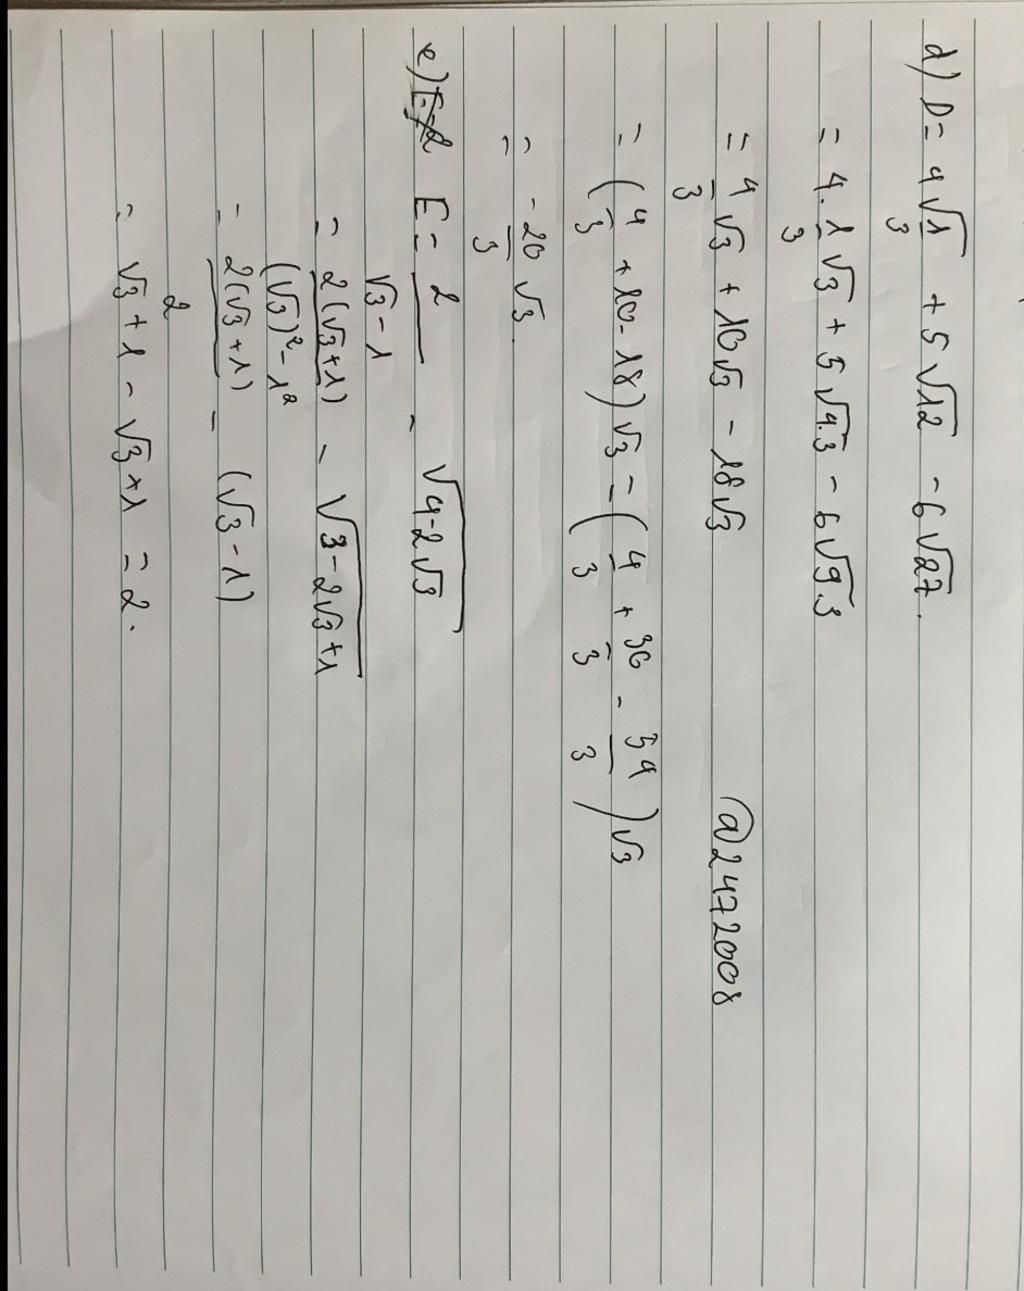 d) D = 4√(1/3) + 5√12 - 6√27.
= 4.1/3 √3 + 5√4.3 - 6√9.3
= 4/3 √3 + 10√3 - 18√3
@2472008
= (4/3 + 10 - 18)√3 = (4/3 + 30/3 - 54/3)√3
= -20/3 √3.
e) E = 2/(√3 - 1) - √(4-2√3)
= 2(√3+1)/((√3)² - 1²) - √(3 - 2√3 + 1)
= 2(√3+1)/2 - (√3 - 1)
= √3 + 1 - √3 + 1 = 2.